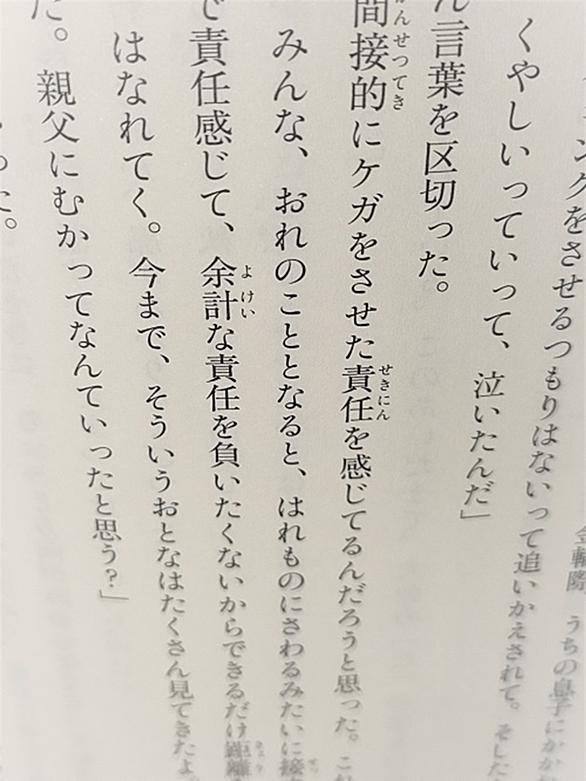 ングをさせるつもりはないって追いかえされて。そした
くやしいっていって、泣いたんだ」
ん言葉を区切った。
間接的にケガをさせた責任を感じてるんだろうと思った。
みんな、おれのこととなると、はれものにさわるみたいに接
で責任感じて、余計な責任を負いたくないからできるだけ距離
はなれてく。今まで、そういうおとなはたくさん見てきたよ。
た。親父にむかってなんていったと思う？」
った。